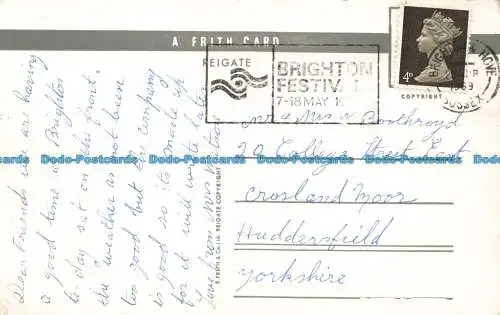 A FRITH CARD
REIGATE
BRIGHTON
FESTIV
7-18 MAY 19
4D
COPYRIGHT
HOVE
1969
SUSSEX
Dear Friends we are having
a good time in Brighton
to-day sat on the front.
the weather as not been
too good but the company
is good so its made up
for it will write later
love from Mrs
F. FRITH & CO. LTD. REIGATE COPYRIGHT
Mr & Mrs W Boothroyd
20 College Street East
Crosland Moor
Huddersfield
Yorkshire
Dodo-Postcards Dodo-Postcards Dodo-Postcards Dodo-Postcards Dodo-Postcards